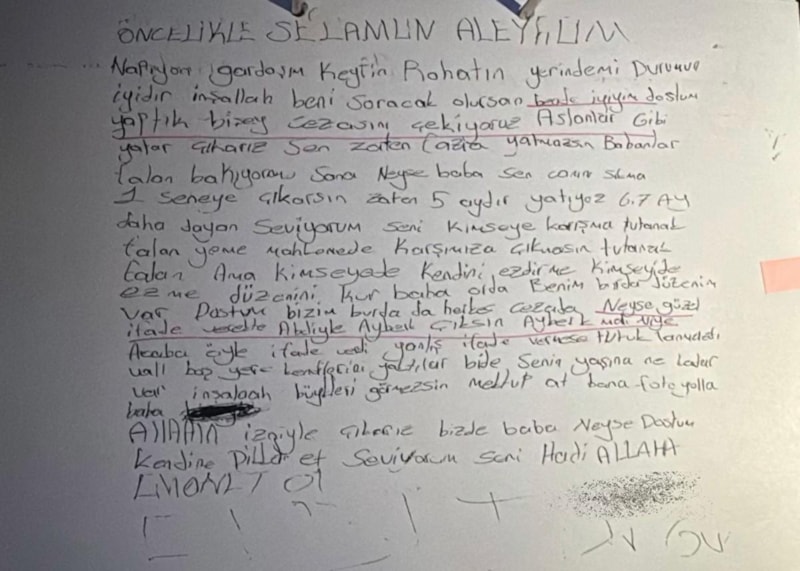 ÖNCELİKLE SELAMUN ALEYKÜM
Napıyon gardaşım Keyfin Rahatın yerindemi Durumun
iyidir inşallah beni soracak olursan bende iyiyim dostum
yaptık bizey cezasını çekiyoruz Aslanlar Gibi
yatar çıkarız Sen zaten fazla yatmazsın Babanlar
falan bakıyorum Sana Neyse baba sen canın sıkma
1 seneye çıkarsın zaten 5 aydır yatıyoz 6.7 AY
daha dayan Seviyorum seni Kimseye karışma tutanak
falan yeme mahkemede Karşımıza çıkmasın tutanak
falan Ama kimseyede Kendini ezdirme Kimseyide
ezme düzenini Kur baba orda Benim burda düzenim
var Dostum bizim burda da herkes cezada Neyse güzel
ifade Abiyle Ayberk Çıksın Ayberk niye
Acaba öyle ifade verdi yanlış ifade vermese tutuklanmazdı
vall boş yere yaktılar bide Senin yaşına ne kadar
var inşaallah bugünleri görmezsin mektup at bana foto yolla
baba
ALLAHIN izniyle çıkarız bizde baba Neyse Dostum
Kendine Dikkat et Seviyorum Seni Hadi ALLAHA
EMANET Ol